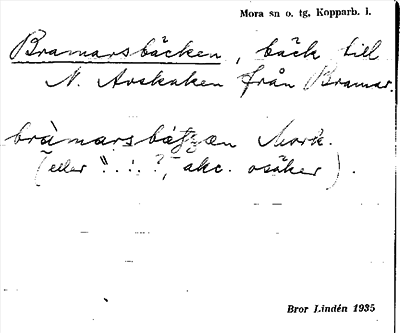 Mora sn o. tg, Kopparb. l.
Bramarsbäcken, bäck till
N. Arskaken från Bramar.
bràmarsbä̀tzæn Mork.
(eller "..:. ?, akc. osäker).
Bror Lindén 1935